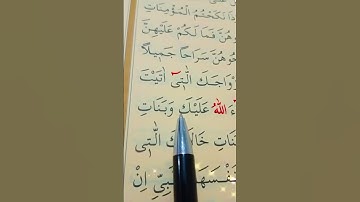 ذَا نَكَحْتُمُ الْمُؤْمِنَاتِ
وهُنَّ فَمَا لَكُمْ عَلَيْهِنَّ
حُوهُنَّ سَرَاحًا جَمِيلًا
زْوَاجَكَ الّٰت۪ٓى اٰتَيْتَ
ءَ اللّٰهُ عَلَيْكَ وَبَنَاتِ
نَاتِ خَالَكَ الّٰت۪ى
نَفْسَهَا نَّبِيِّ اِنْ